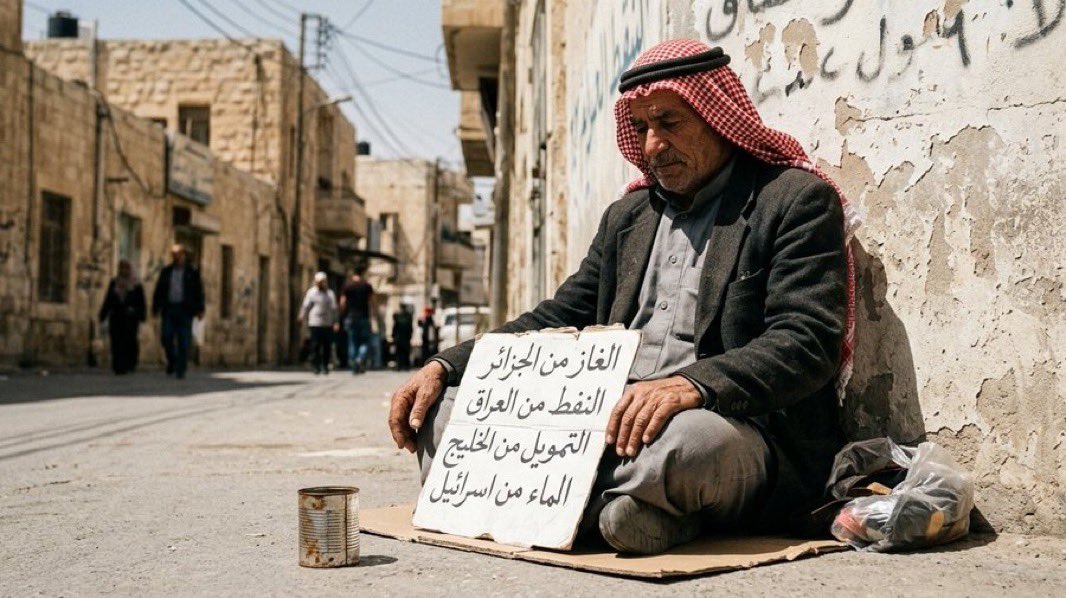 الغاز من الجزائر
النفط من العراق
التمويل من الخليج
الماء من اسرائيل